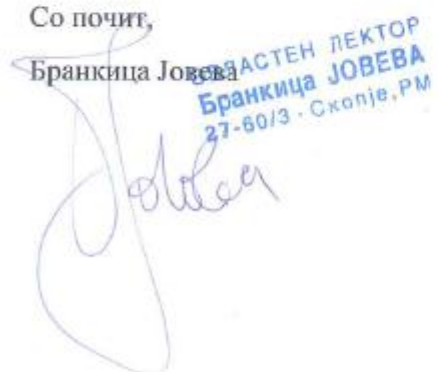 Со почит,
Бранкица Јовева
ОВЛАСТЕН ЛЕКТОР
Бранкица ЈОВЕВА
27-60/3 - Скопје, РМ
Јовева